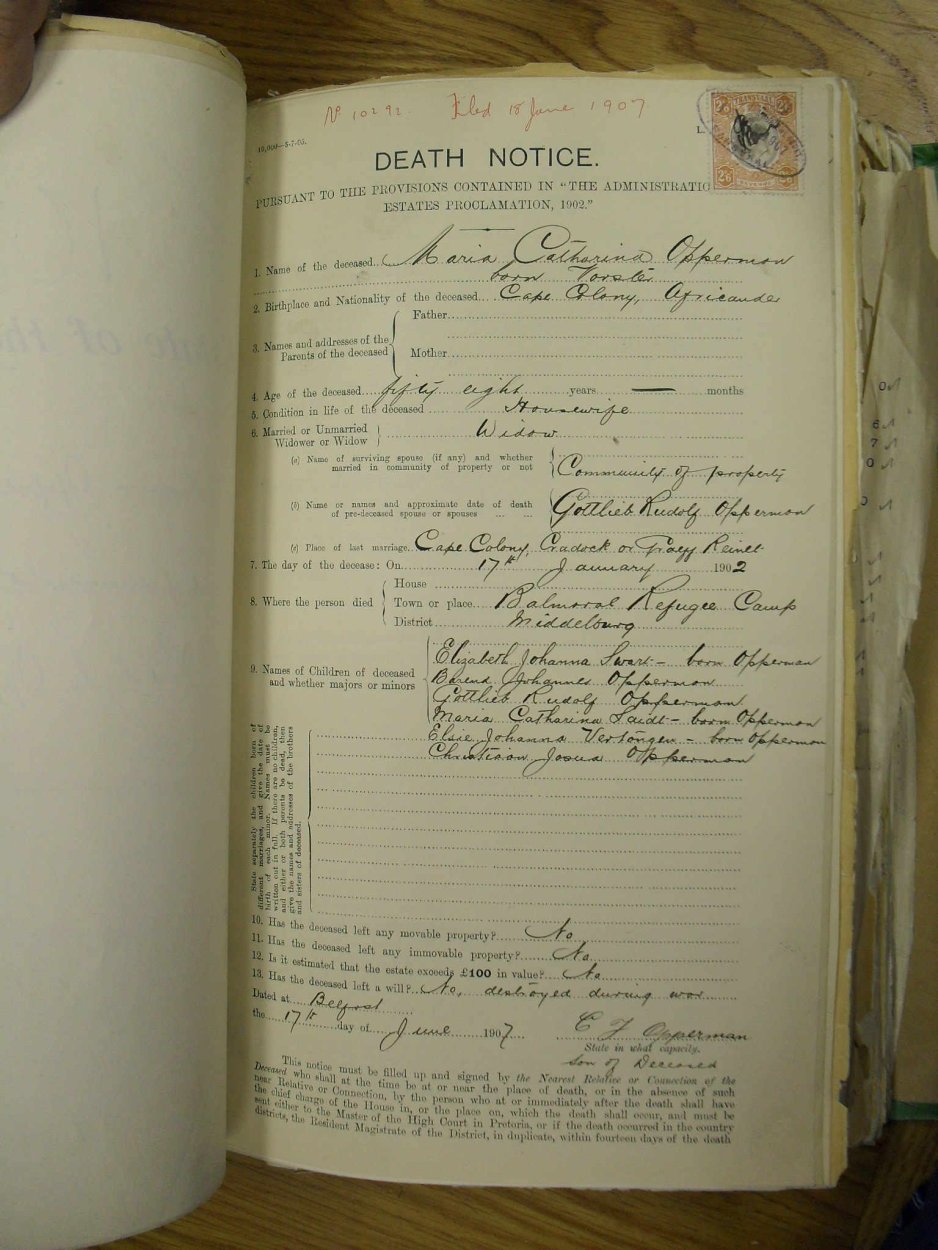 No 10292. Filed 18 June 1907.
10,000—5-7-05.
L.
TRANSVAAL
2/6 2/6
DEATH NOTICE.
PURSUANT TO THE PROVISIONS CONTAINED IN "THE ADMINISTRATIO
ESTATES PROCLAMATION, 1902."
1. Name of the deceased Maria Catharina Opperman
born Vorster
2. Birthplace and Nationality of the deceased Cape Colony, Africander
3. Names and addresses of the Parents of the deceased
Father
Mother
4. Age of the deceased fifty eight years — months
5. Condition in life of the deceased Housewife
6. Married or Unmarried Widower or Widow Widow
(a) Name of surviving spouse (if any) and whether married in community of property or not Community of property
(b) Name or names and approximate date of death of pre-deceased spouse or spouses ... ... Gottlieb Rudolf Opperman
(c) Place of last marriage Cape Colony, Cradock or Graaf Reinet
7. The day of the decease: On 17th January 1902
8. Where the person died
House
Town or place Balmoral Refugee Camp
District Middelburg
9. Names of Children of deceased and whether majors or minors
Elizabeth Johanna Swart - born Opperman
Barend Johannes Opperman
Gottlieb Rudolf Opperman
Maria Catharina - born Opperman
Elsie Johanna - born Opperman
Christiaan Josua Opperman
State separately the children born of
different marriages, and give the date of
birth of each minor. Names must be
written out in full. If there are no children,
and either or both parents be dead, then
give the names and addresses of the brothers
and sisters of deceased.
10. Has the deceased left any movable property? No
11. Has the deceased left any immovable property? No
12. Is it estimated that the estate exceeds £100 in value? No
13. Has the deceased left a will? No, destroyed during war
Dated at Belfast
the 17th day of June 1907
Opperman
State in what capacity.
Son of Deceased
This notice must be filled up and signed by the Nearest Relative or Connection of the
Deceased who shall at the time be at or near the place of death, or in the absence of such
near Relative or Connection, by the person who at or immediately after the death shall have
the chief charge of the House in, or the place on, which the death shall occur, and must be
sent either to the Master of the High Court in Pretoria, or if the death occurred in the country
districts, the Resident Magistrate of the District, in duplicate, within fourteen days of the death